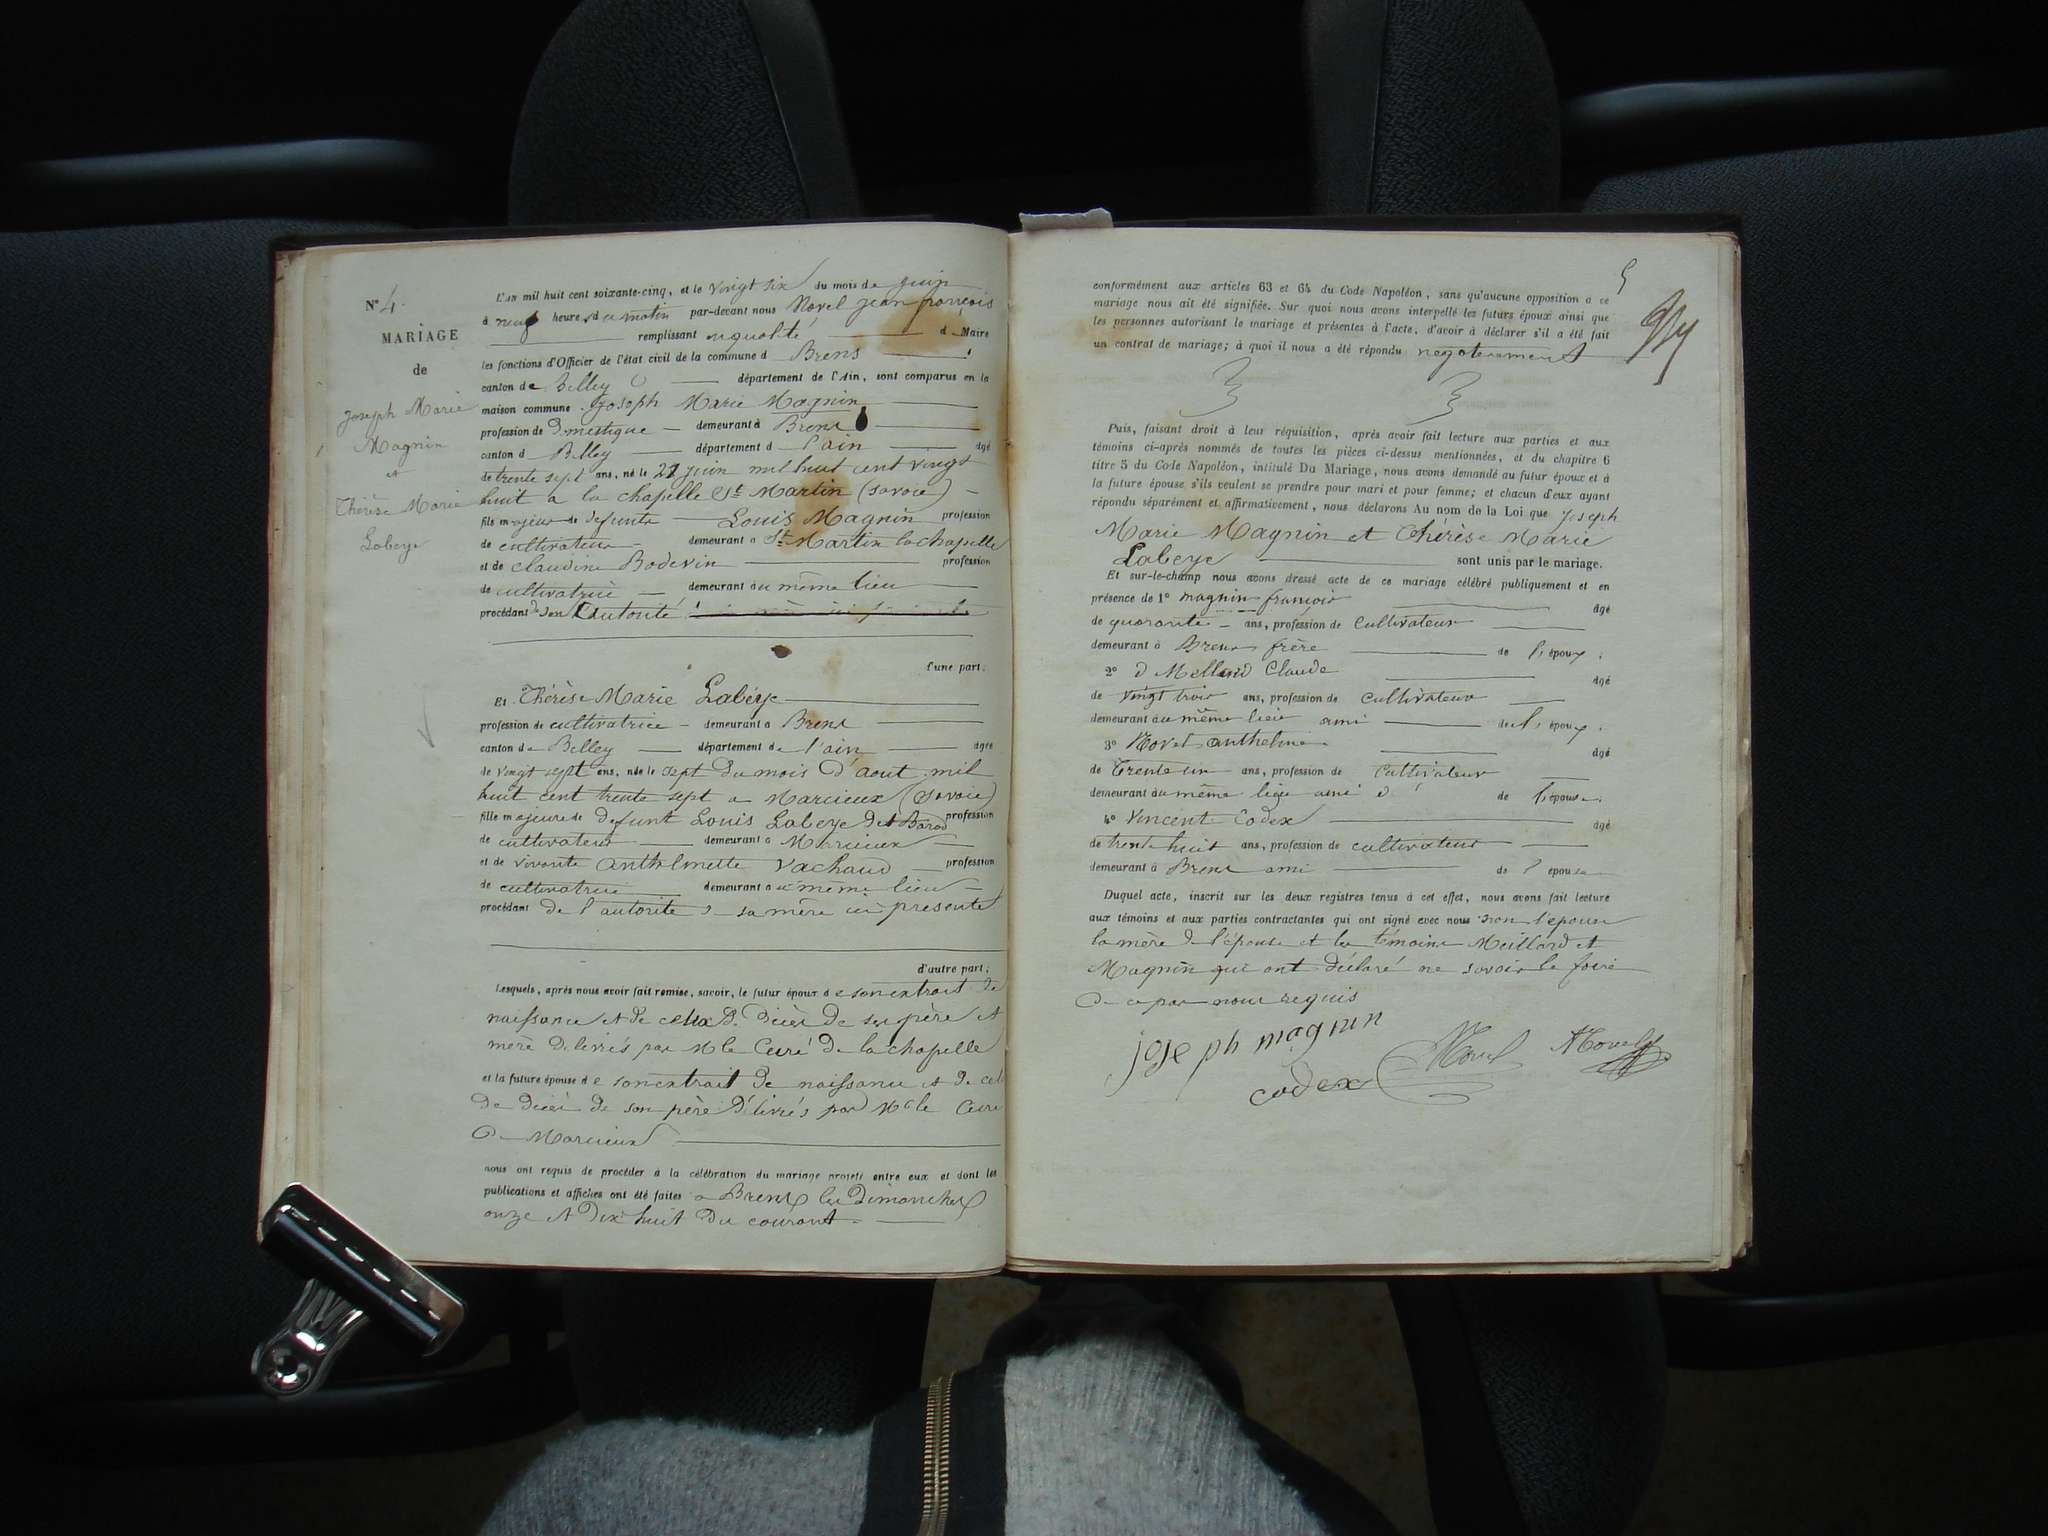 N° 4.
MARIAGE
de
Joseph Marie
Magnin
et
Thérèse Marie
Labeye
L'an mil huit cent soixante-cinq, et le vingt six du mois de juin
à neuf heures du matin par-devant nous Novel jean françois
remplissant en qualité d Maire
les fonctions d'Officier de l'état civil de la commune d Brens
canton de Belley département de l'Ain, sont comparus en la
maison commune Joseph Marie Magnin
profession de domestique demeurant à Brens
canton d Belley département d l'ain âgé
de trente sept ans, né le 27 juin mil huit cent vingt
huit a la chapelle St Martin (savoie)
fils majeur de defunts Louis Magnin profession
de cultivateur demeurant a St Martin la chapelle
et de claudine Bodevin profession
de cultivatrice demeurant au même lieu
procédant de son autorité
d'une part;
Et Thérèse Marie Labéye
profession de cultivatrice demeurant à Brens
canton de Belley département de l'ain âgée
de vingt sept ans, née le sept du mois d'aout mil
huit cent trente sept a Marcieux (savoie)
fille majeure de defunt Louis Labeye profession
de cultivateur demeurant a Marcieux
et de vivante anthelmette vachaud profession
de cultivatrice demeurant au même lieu
procédant de l'autorité de sa mère ici presente
d'autre part;
Lesquels, après nous avoir fait remise, savoir, le futur époux de son extrait de
naissance et de ceux de décès de ses père et
mère delivrés par M le Curé de la chapelle
et la future épouse de son extrait de naissance et de celui
de décès de son père délivrés par M le Curé
de Marcieux
nous ont requis de procéder à la célébration du mariage projeté entre eux et dont les
publications et affiches ont été faites a Brens les Dimanches
onze et dix huit du courant.
5
conformément aux articles 63 et 64 du Code Napoléon, sans qu'aucune opposition a ce
mariage nous ait été signifiée. Sur quoi nous avons interpellé les futurs époux ainsi que
les personnes autorisant le mariage et présentes à l'acte, d'avoir à déclarer s'il a été fait
un contrat de mariage; à quoi il nous a été répondu negativement
Puis, faisant droit à leur réquisition, après avoir fait lecture aux parties et aux
témoins ci-après nommés de toutes les pièces ci-dessus mentionnées, et du chapitre 6
titre 5 du Code Napoléon, intitulé Du Mariage, nous avons demandé au futur époux et à
la future épouse s'ils veulent se prendre pour mari et pour femme; et chacun d'eux ayant
répondu séparément et affirmativement, nous déclarons Au nom de la Loi que Joseph
Marie Magnin et Thérèse Marie
Labeye sont unis par le mariage.
Et sur-le-champ nous avons dressé acte de ce mariage célébré publiquement et en
présence de 1° magnin françois âgé
de quarante ans, profession de cultivateur
demeurant à Brens frère de l'époux;
2° Claude âgé
de vingt trois ans, profession de cultivateur
demeurant au même lieu ami de l'époux;
3° Novel anthelme âgé
de trente un ans, profession de cultivateur
demeurant au même lieu ami de l'épouse;
4° Vincent Codex âgé
de trente huit ans, profession de cultivateur
demeurant à Brens ami de l'épouse
Duquel acte, inscrit sur les deux registres tenus à cet effet, nous avons fait lecture
aux témoins et aux parties contractantes qui ont signé avec nous non l'épouse
la mère de l'épouse et les témoins Meilland et
Magnin qui ont déclaré ne savoir le faire
de ce par nous requis
joseph magnin
codex
Novel
Novel